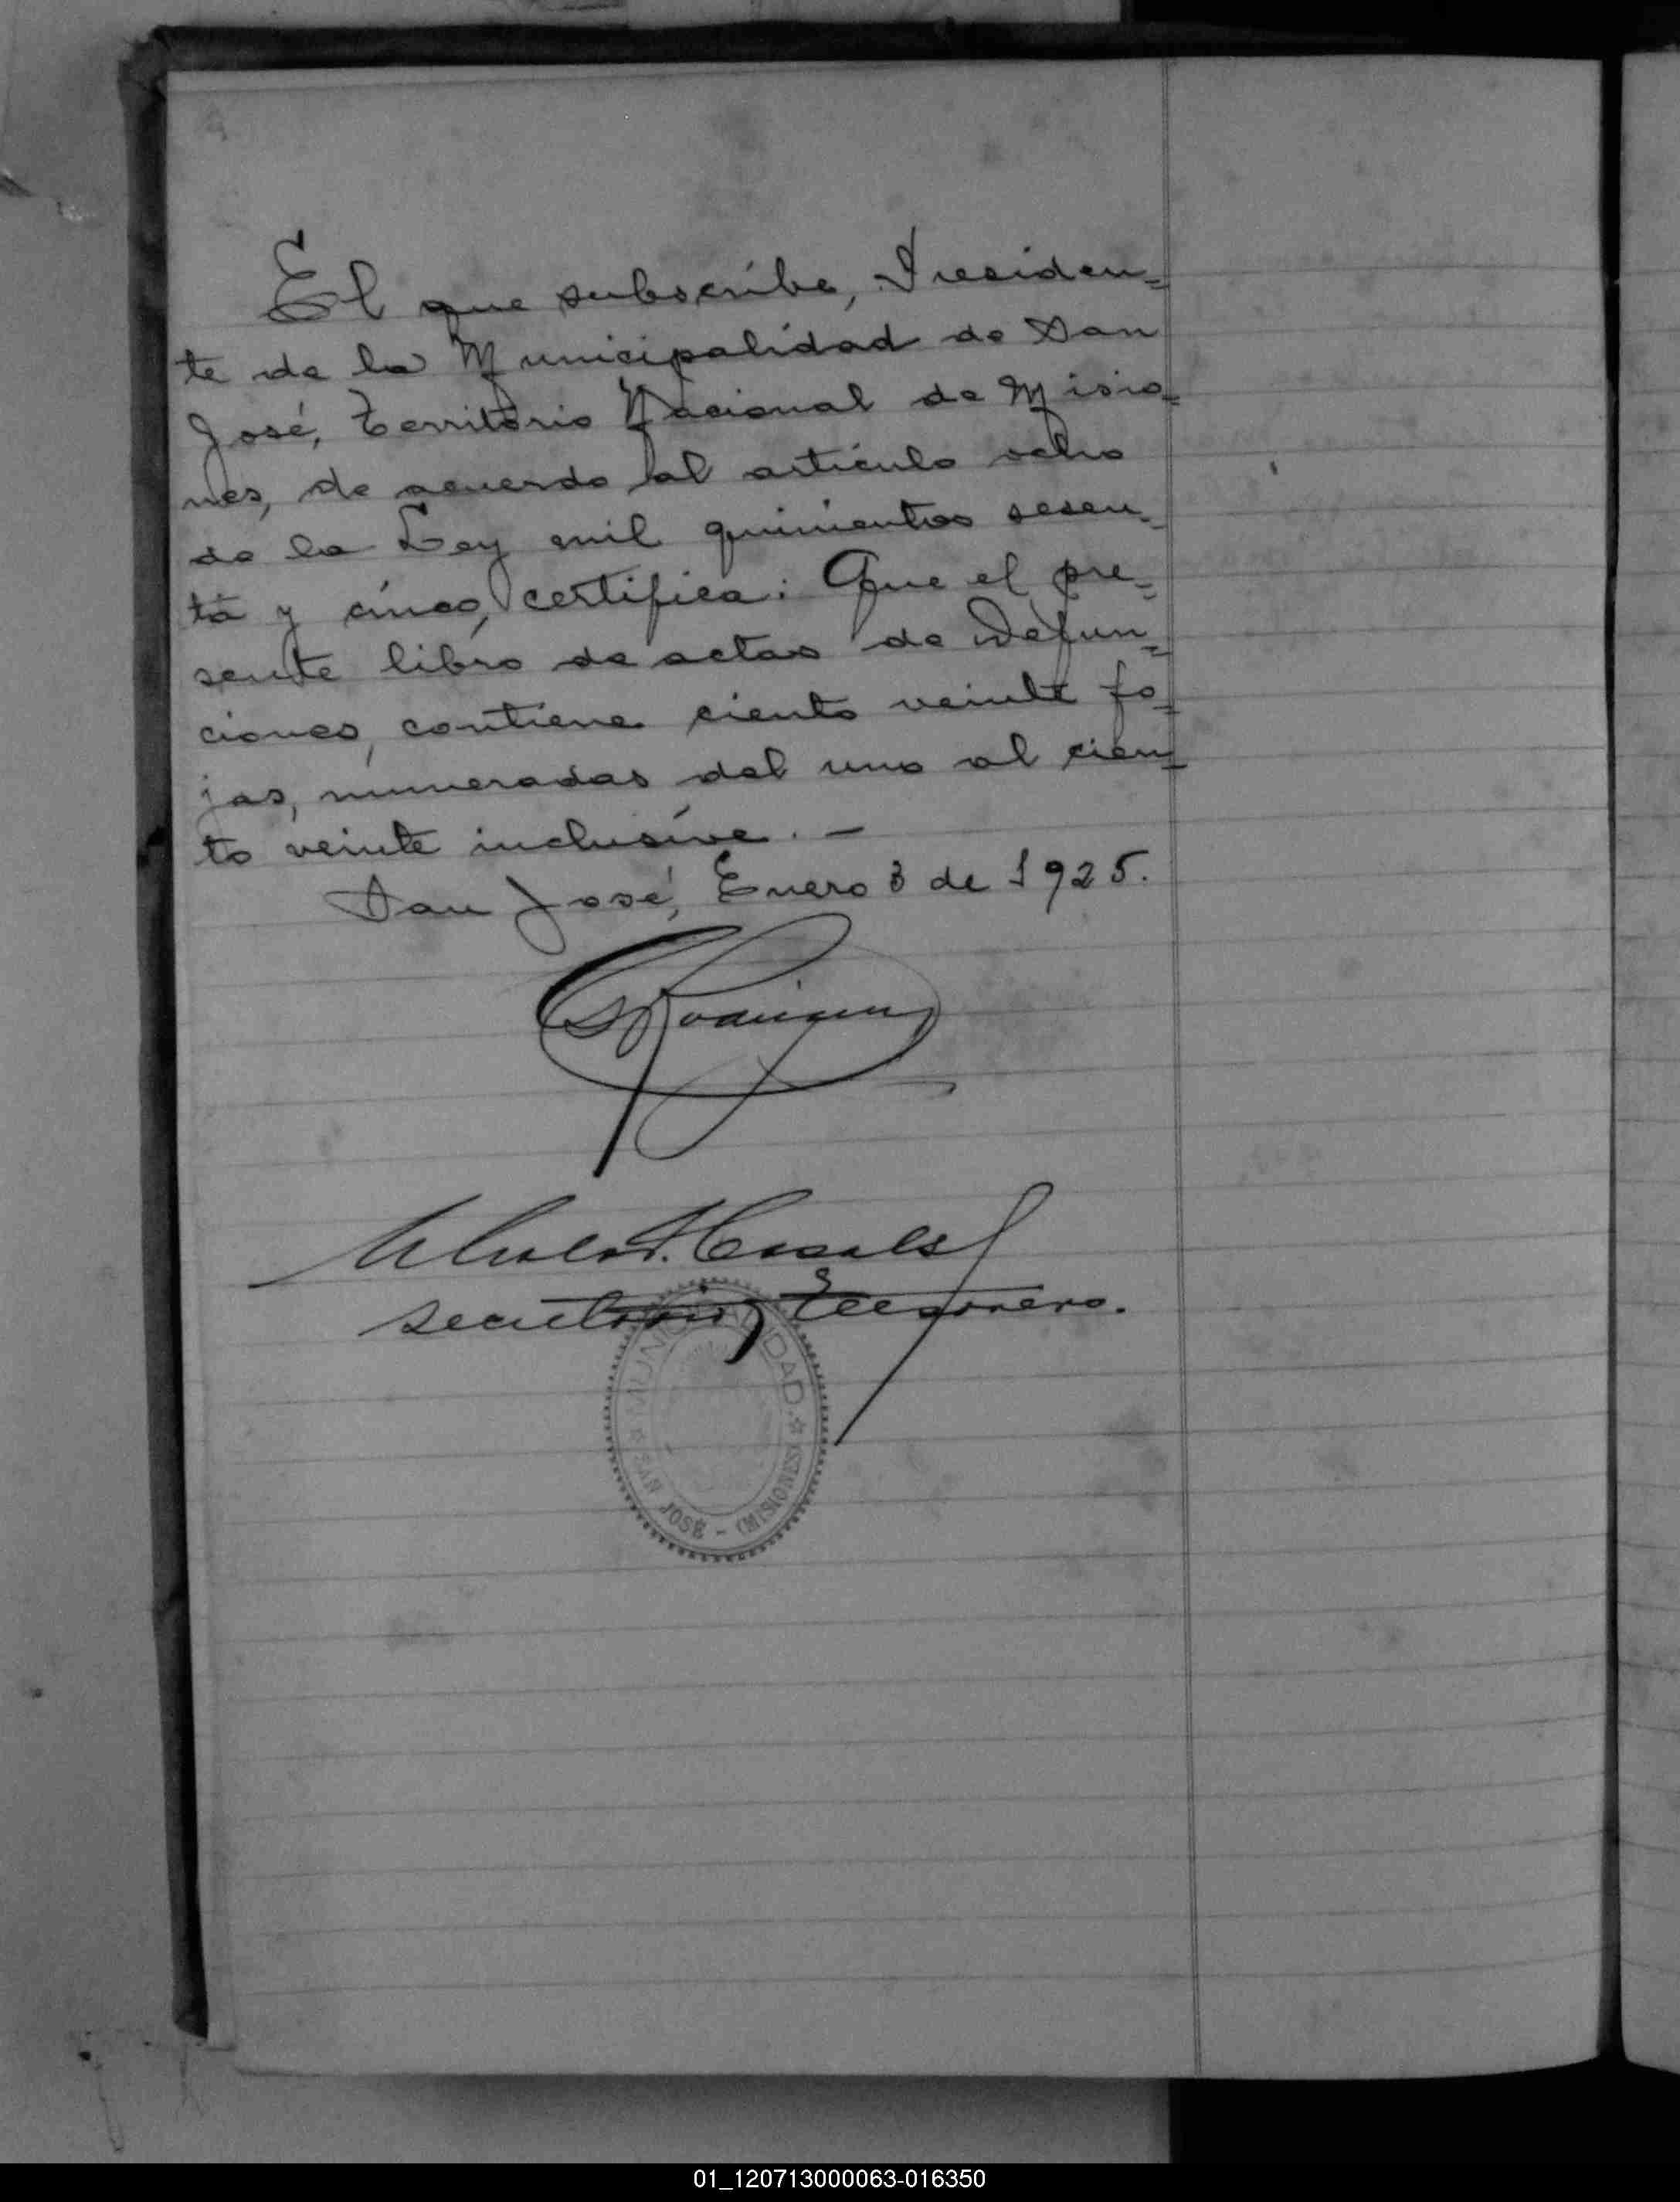 El que subscribe, Presiden=
te de la Municipalidad de San
José, Territorio Nacional de Misio=
nes, de acuerdo al artículo ocho
de la Ley mil quinientos sesen=
ta y cinco, certifica: Que el pre=
sente libro de actas de Defun=
ciones, contiene ciento veinte fo=
jas, numeradas del uno al cien=
to veinte inclusíve. –
San José, Enero 3 de 1925.
secretario y Tesorero.
MUNICIPALIDAD
SAN JOSÉ - (MISIONES)
01_120713000063-016350